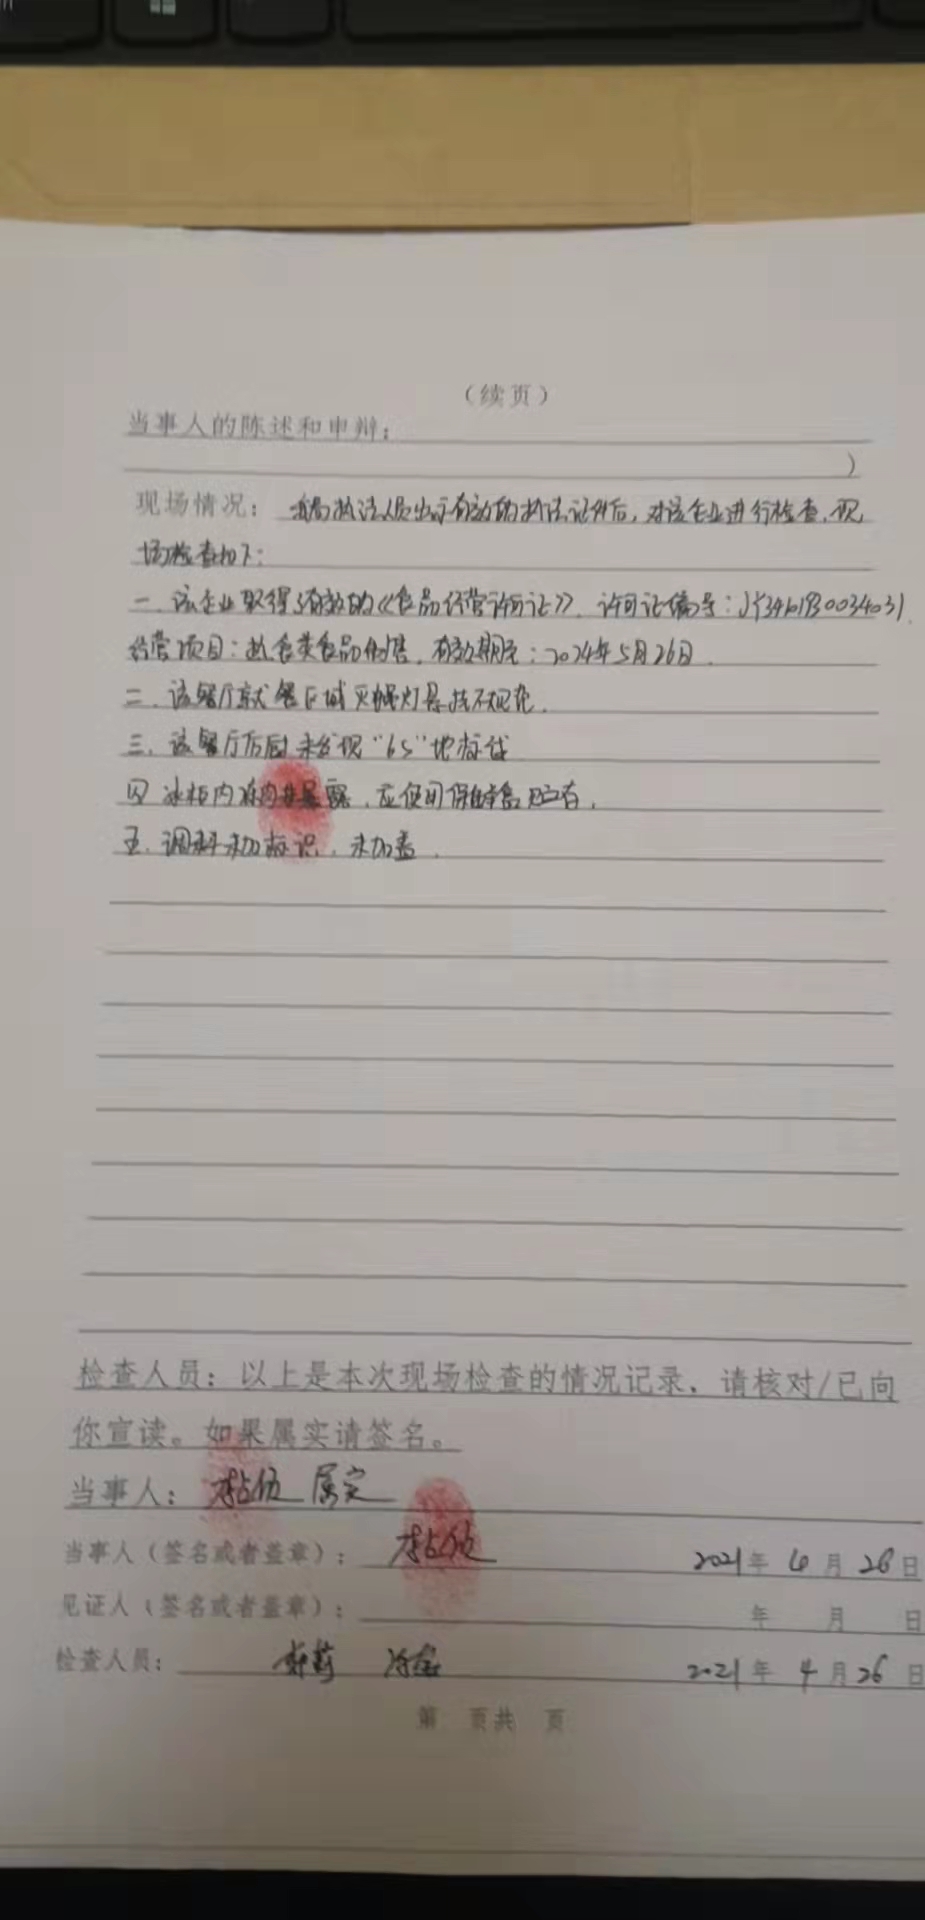 （续页）
当事人的陈述和申辩：
）
现场情况：我局执法人员出示有效的执法证件后，对该企业进行检查，现
场检查如下：
一、该企业取得了有效的《食品经营许可证》，许可证编号：JY3461930034031，
经营项目：热食类食品制售，有效期至：2024年5月26日。
二、该餐厅就餐区域灭蝇灯悬挂不规范。
三、该餐厅后厨未发现“6S”地标线
四 冰柜内 暴露，应使用保鲜盒贮存。
五、调料未加标识，未加盖。
检查人员：以上是本次现场检查的情况记录，请核对/已向
你宣读。如果属实请签名。
当事人： 属实
当事人（签名或者盖章）： 2021年4月26日
见证人（签名或者盖章）： 年 月 日
检查人员： 2021年4月26日
第 页共 页